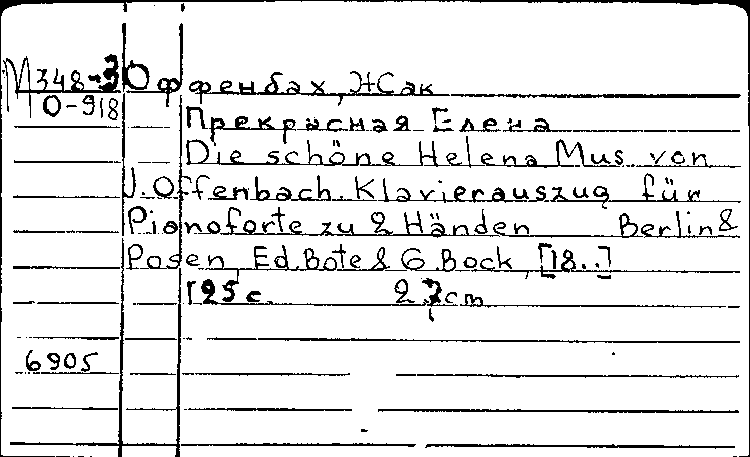 М348-3 Оффенбах, Жак
О-918
Прекрасная Елена
Die schöne Helena Mus. von
J. Offenbach. Klavierauszug für
Pianoforte zu 2 Händen Berlin &
Posen, Ed. Bote & G. Bock, [18..]
125 c. 27 cm
6905